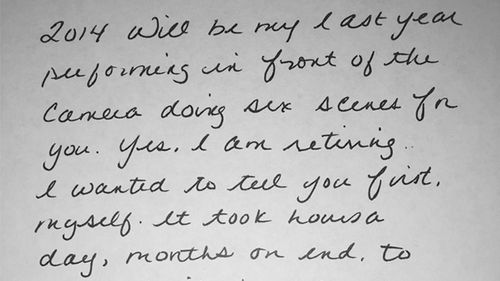 2014 will be my last year
performing in front of the
Camera doing sex scenes for
you. Yes, I am retiring.
I wanted to tell you first,
myself. It took hours a
day, months on end, to